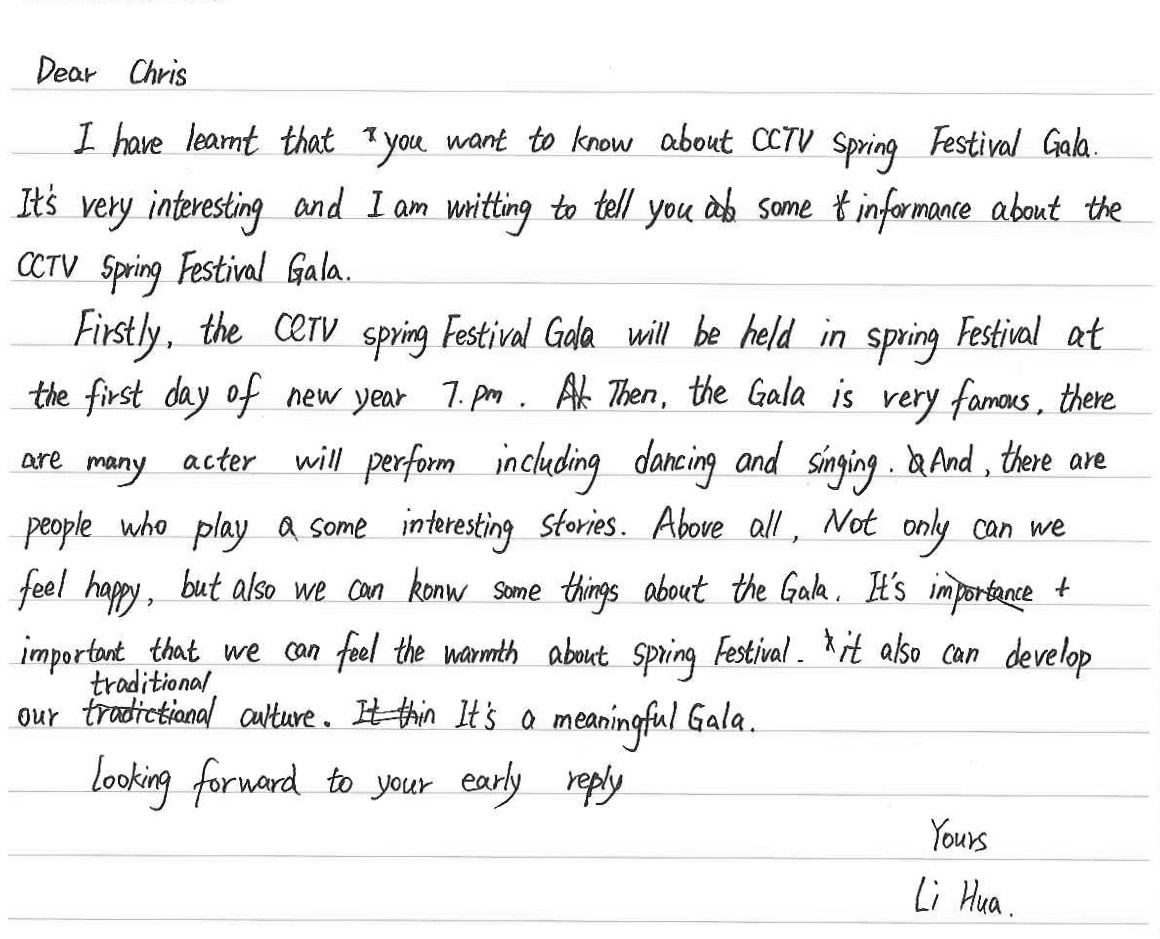 Dear Chris
I have learnt that you want to know about CCTV Spring Festival Gala.
It's very interesting and I am writting to tell you some informance about the
CCTV Spring Festival Gala.
Firstly, the CCTV spring Festival Gala will be held in spring Festival at
the first day of new year 7. pm. Then, the Gala is very famous, there
are many acter will perform including dancing and singing. And, there are
people who play some interesting stories. Above all, Not only can we
feel happy, but also we can konw some things about the Gala. It's importance
important that we can feel the warmth about Spring Festival. it also can develop
traditional
our tradictional culture. It thin It's a meaningful Gala.
Looking forward to your early reply
Yours
Li Hua.